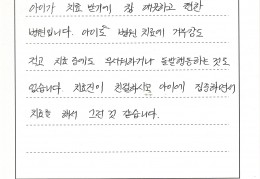 아이가 치료 받기에 참 깨끗하고 편한
병원입니다. 아이도 병원 치료에 거부감도
적고 치료 중에도 무서워하거나 돌발행동하는 것도
없습니다. 치료진이 친절하시고 아이에 집중하면서
치료를 해서 그런 것 같습니다.